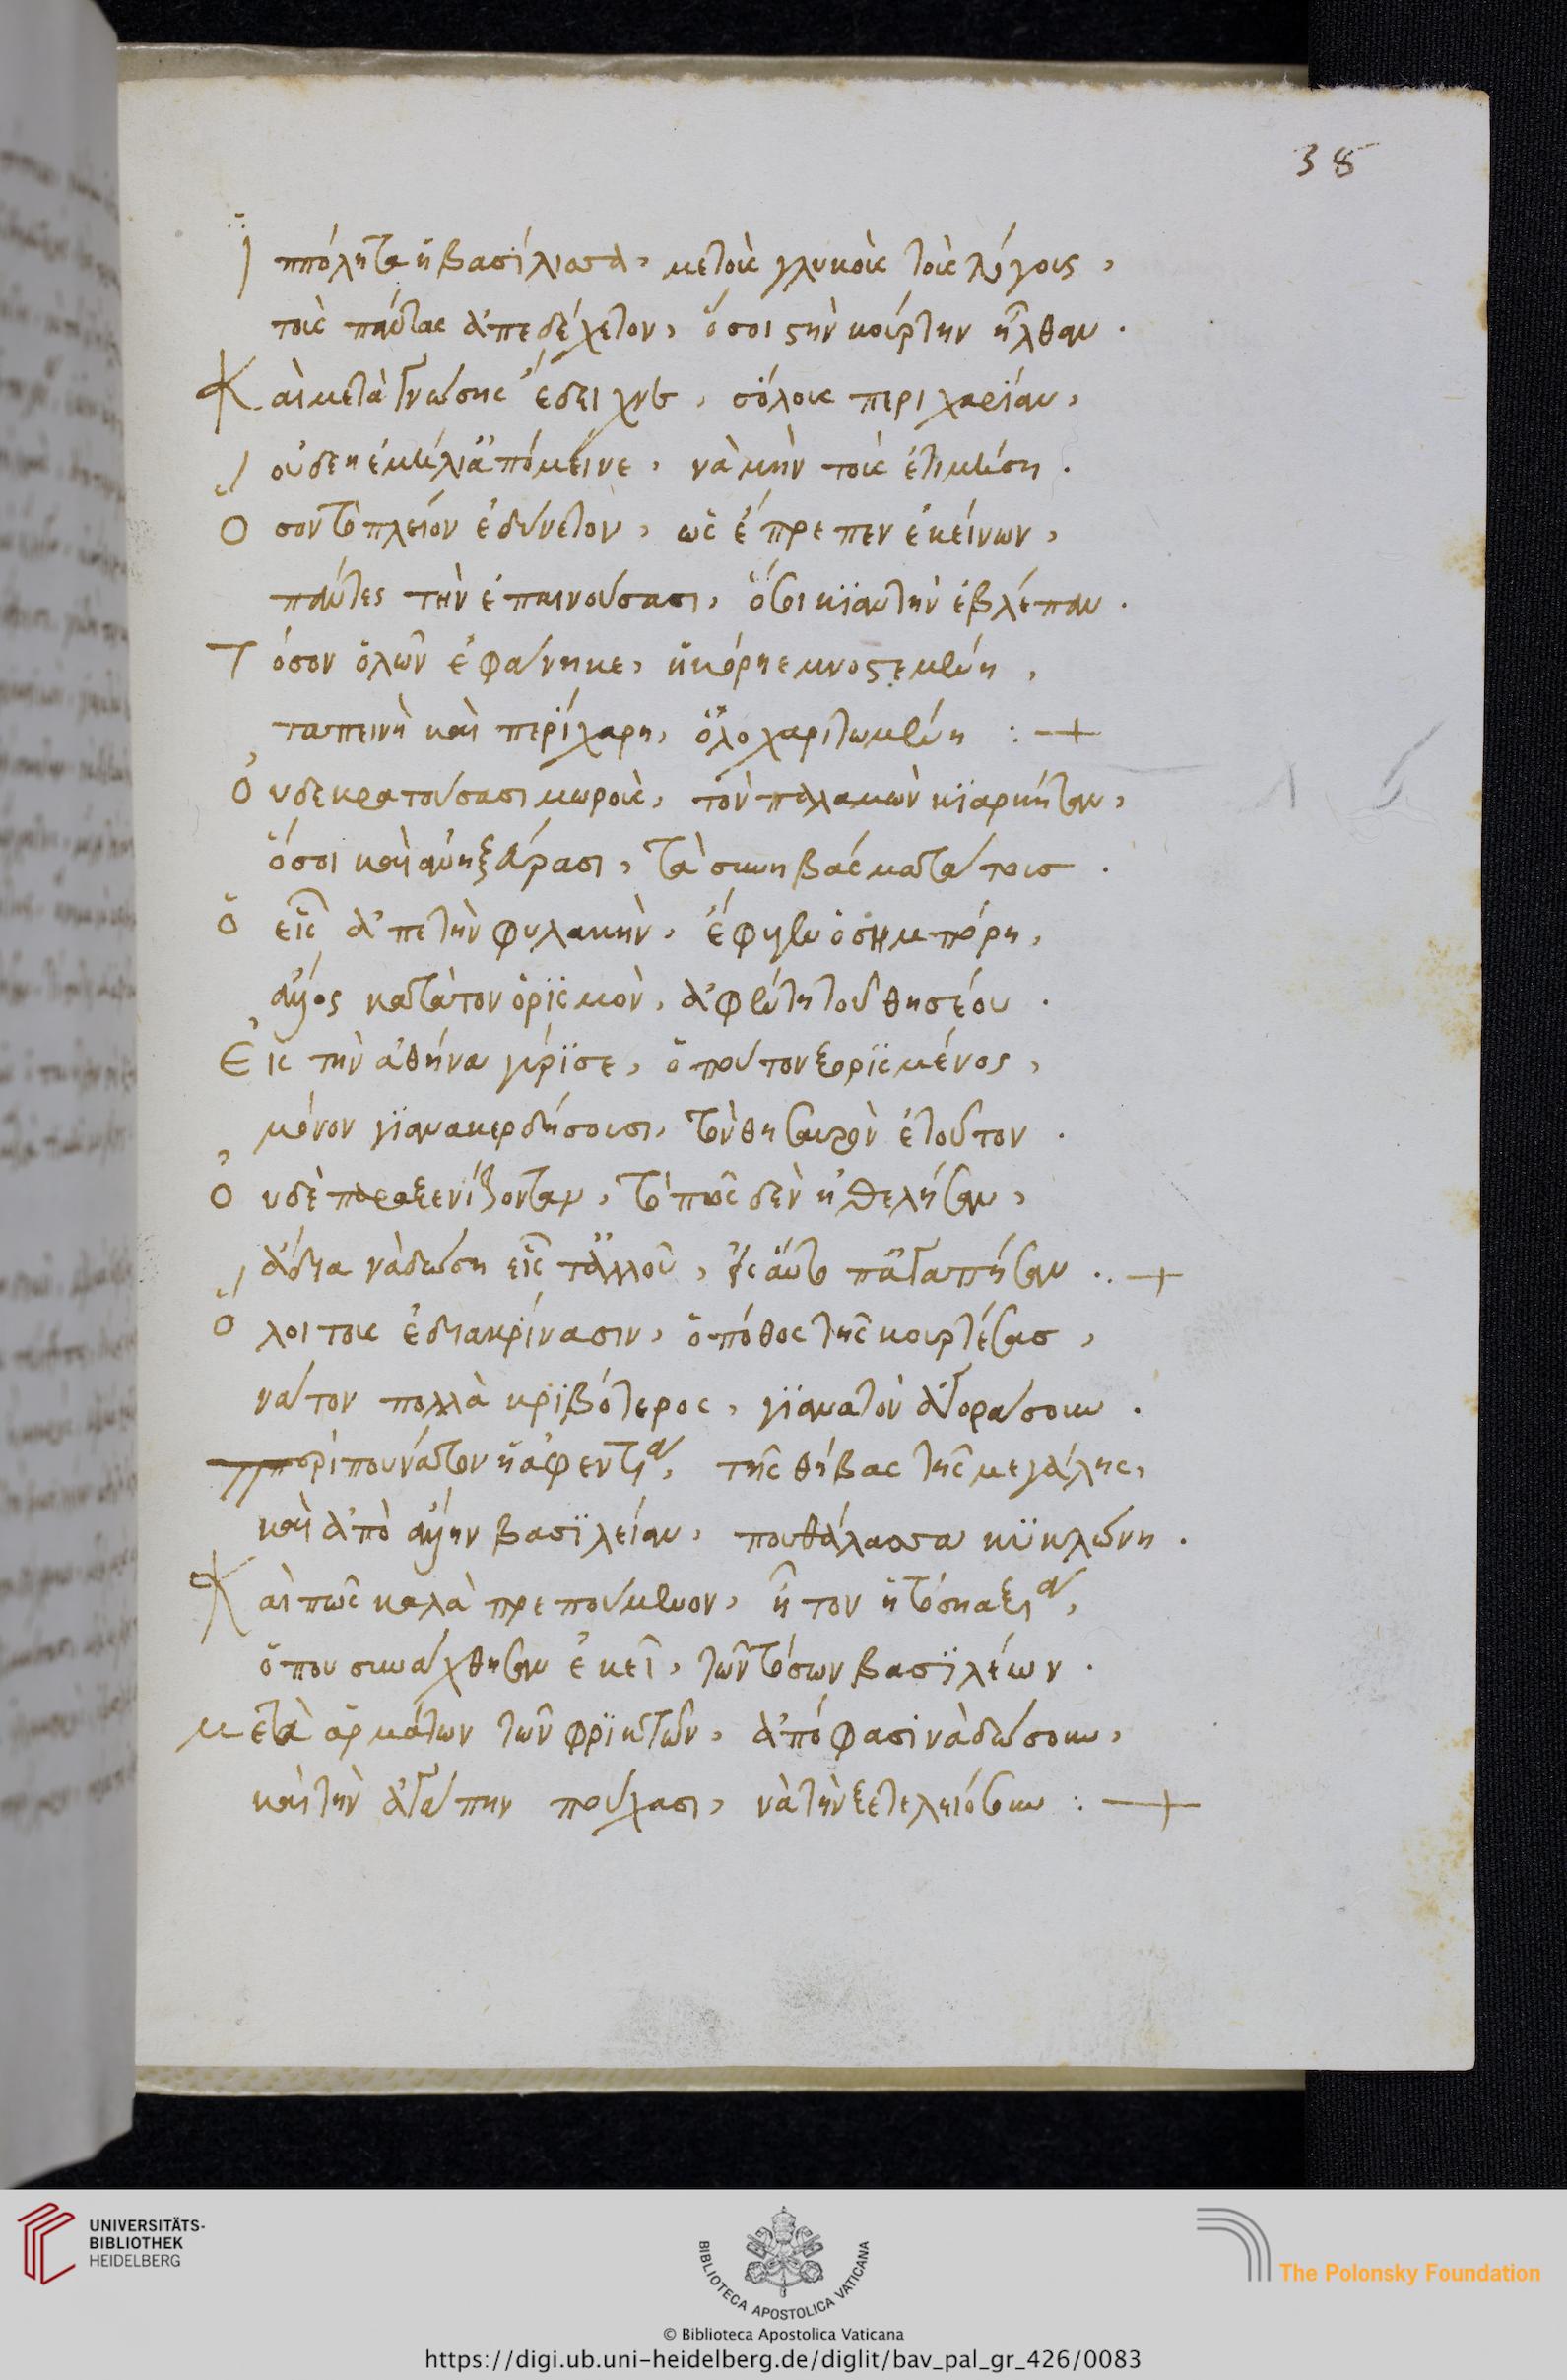 38
Ἱππόλητα ἡ βασίλισσα, με τοὶς γλυκοὶς τοὶς λόγοις,
τοὶς πάντας ἀπεδέχετον, ὅσοι στὴν κούρτην ἦλθαν.
Καὶ μετὰ γνώσης ἔδειχνε, σ όλοις περιχαρίαν,
ουδεν εμέλια πόμεινε, νὰ μὴν τοὶς ἐτιμήση.
Ὅσον το πλεῖον ἐδύνετον, ὡς ἔπρεπεν ἐκείνων,
πάντες τὴν ἐπαινούσασι, ὅτι κι αυτὴν ἐβλέπαν.
Τόσον ὁλῶν ἐφάνηκε, ἡ κόρη εμνοστεμένη,
ταπεινὴ καὶ περίχαρη, ὁλοχαριτωμένη : +
Ὀυδε κρατούσασι μωροὶς, τὸν παλαμὼν κι αρκήταν,
ὅσοι καὶ αν ηξάρασι, τὰ συνηβάσματά τοις.
ὁ εἷς ἀπε τὴν φυλακὴν, ἔφυγεν ὁσημπόρη,
ἄλλος κατὰ τον ὁρισμὸν, ἀφέντη τοῦ θησέου.
Εἰς τὴν ἀθήνα γύρισε, ὁπού τον ξορισμένος,
μόνον για να κερδήσουσι, τὸν θησαυρὸν ἐτοῦτον.
Ὀυδὲ παραξενίζονταν, τὸ πῶς δὲν ἠθελήσαν,
ἄδεια νὰ δώση εἷς τ ἄλλου, εἰς αὐτὸ π ἀγαπήσαν. +
Ὅλοι τοις ἐδιακρίνασιν, ὁ πόθος τῆς κουρτέσας,
νά τον πολλὰ κριβότερος, για να τὸν ἀγοράσουν.
παρὶ που νάτον ἡ ἀφεντιά, τῆς θήβας τῆς μεγάλης,
καὶ ἀπὸ ἄλλην βασιλείαν, που θάλασσα κυκλώνη.
Καὶ πῶς καλὰ πρεπούμενον, ἦτον ἡ τόση αξιά,
ὁπου συνάχθησαν ἐκεῖ, τῶν τόσων βασιλέων.
μετὰ ἁρμάτων τῶν φρικτῶν, ἀπόφασι νὰ δώσουν,
καὶ τὴν ἀγάπην πούχασι, νὰ τὴν ξετεληιόσουν : +
UNIVERSITÄTS-
BIBLIOTHEK
HEIDELBERG
BIBLIOTECA APOSTOLICA VATICANA
The Polonsky Foundation
© Biblioteca Apostolica Vaticana
https://digi.ub.uni-heidelberg.de/diglit/bav_pal_gr_426/0083